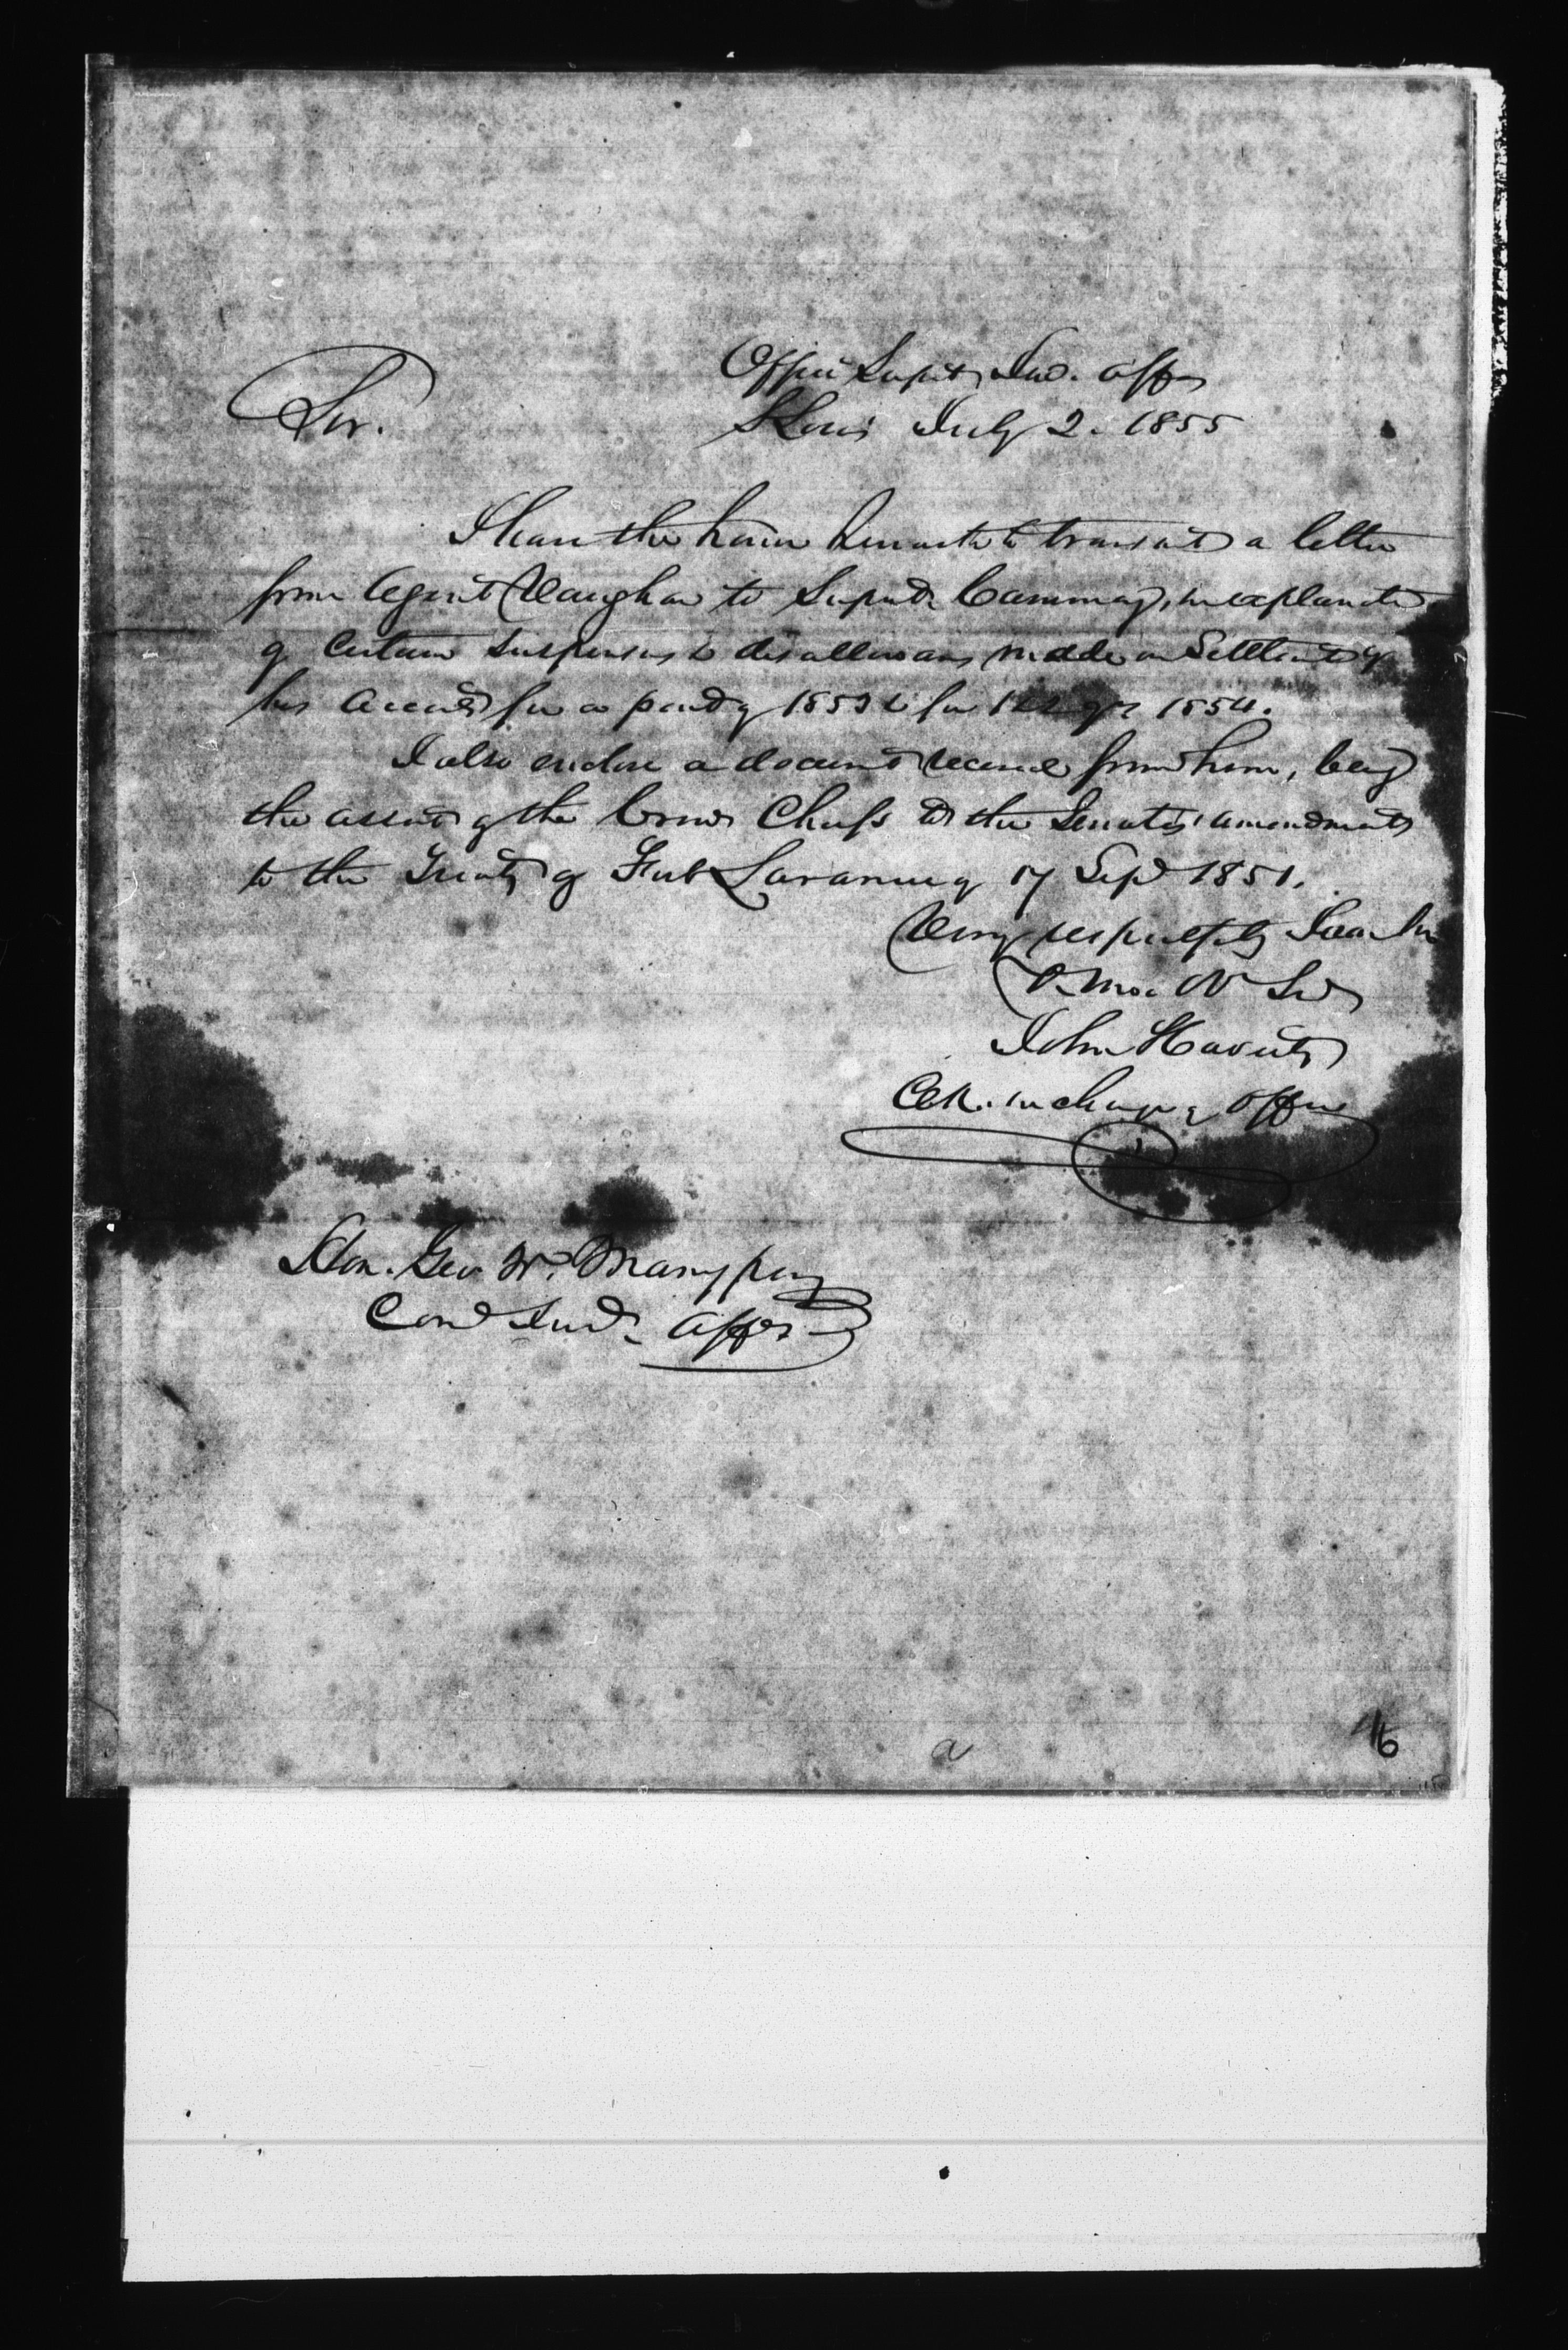 Office Supt Ind. Affs
Sir. St Louis July 2. 1855
I have the honor herewith to transmit a letter
from Agent Vaughan to Supndt Cumming, in explanation
of certain suspensions & disallowances made on settlement of
his accounts for a part of 1853 & for 1854.
I also enclose a document received from him, being
the assent of the Crow Chiefs to the Senates amendments
to the Treaty of Fort Laramie of 17 Sept 1851.
Very respectfully I am Sir
Your Mo. Ob Svt
John Haverty
Clk. in charge of office
Hon. Geo W. Manypenny
Com Ind. Affrs
a
16